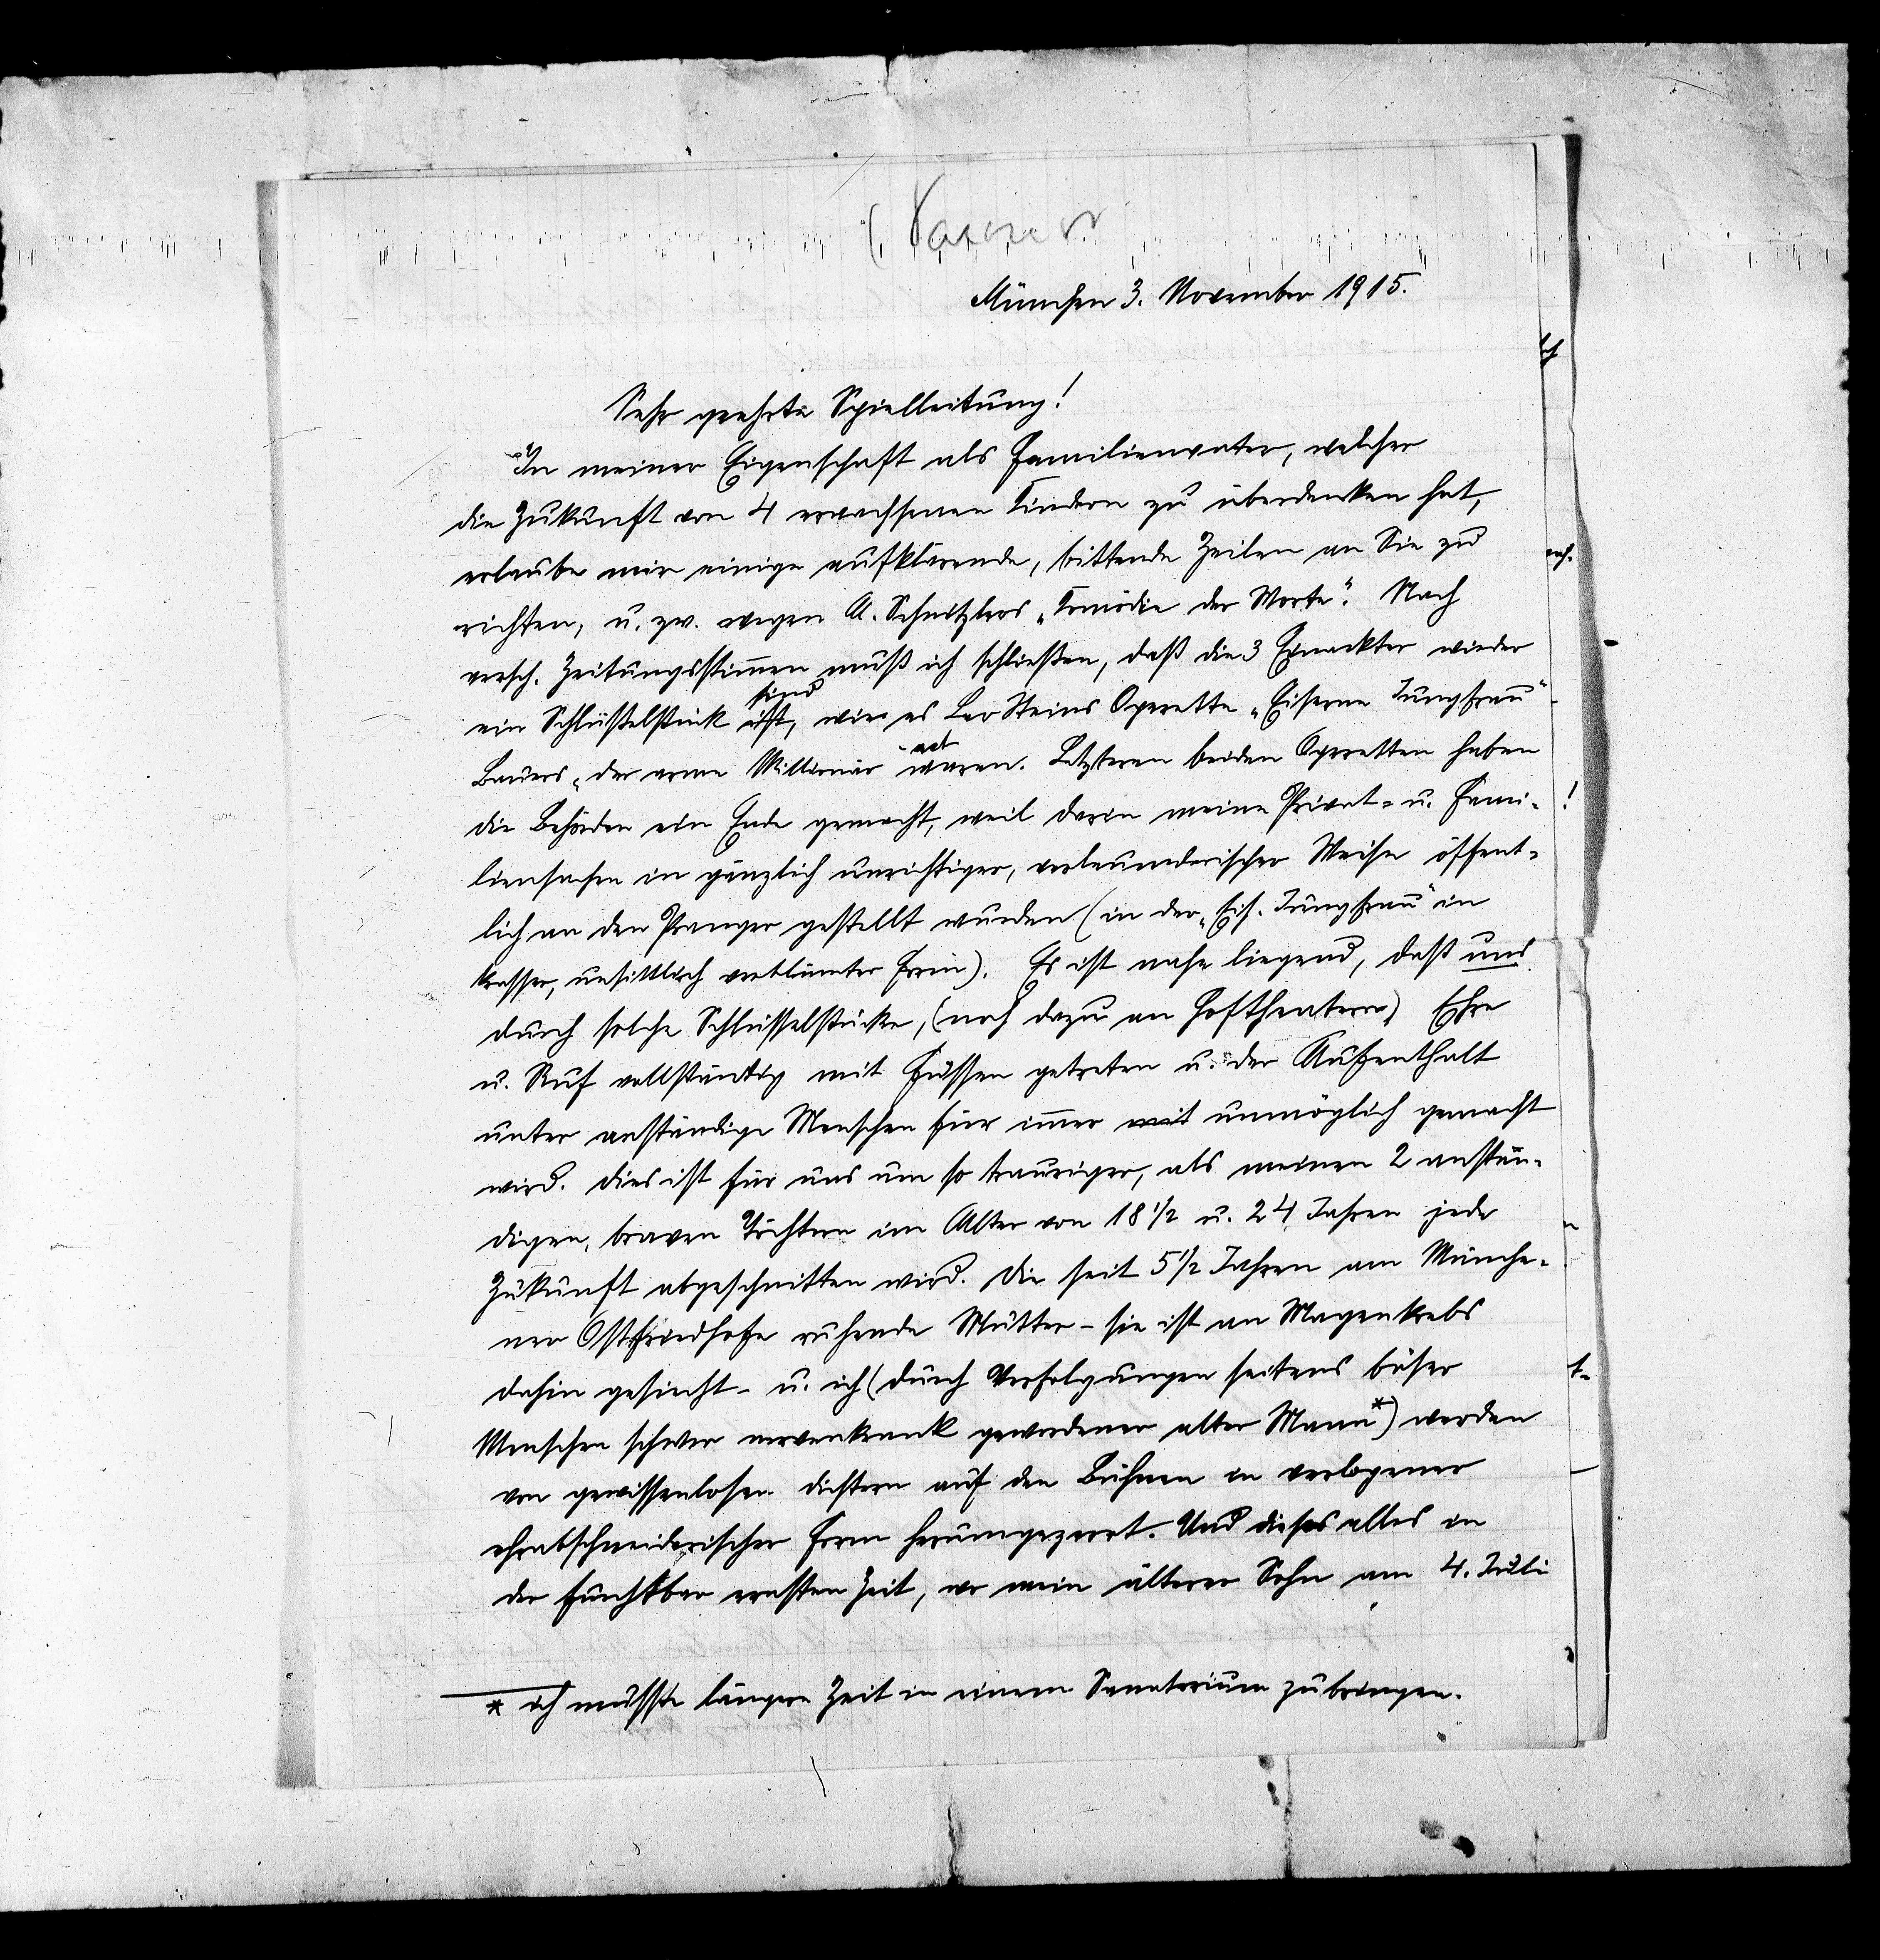 München 3. November 1915.
Sehr geehrte Spielleitung!
In meiner Eigenschaft als Familienvater, welcher
die Zukunft von 4 erwachsenen Kindern zu überdenken hat,
erlaube mir einige aufklärende, bittende Zeilen an Sie zu
richten, u. zw. wegen A. Schnitzlers „Komödie der Worte“. Nach
versch. Zeitungsstimmen muß ich schließen, daß die 3 Einackter wieder
sind
ein Schlüßelstück ist, wie es Leo Steins Operette „Eiserne Jungfrau“
Bauers „der arme Millionär“ waren. Letzteren beiden Operetten haben
die Behörden ein Ende gemacht, weil darin meine Privat- u. Fami-
liensachen in gänzlich unrichtiger, verleumderischer Weise öffent-
lich an den Pranger gestellt wurden (in der „Eis. Jungfrau“ in
krasser, unsittlich verblümter Form). Es ist nahe liegend, daß uns
durch solche Schlüsselstücke, (noch dazu an Hoftheatern) Ehre
u. Ruf vollständig mit Füssen getreten u. der Aufenthalt
unter anständige Menschen für immer mit unmöglich gemacht
wird. Dies ist für uns um so trauriger, als meinen 2 anstän-
digen, braven Töchtern im Alter von 18 1/2 u. 24 Jahren jede
Zukunft abgeschnitten wird. Die seit 5 1/2 Jahren am Münche-
ner Ostfriedhofe ruhende Mutter - sie ist an Magenkrebs
dahin gesiecht - u. ich (durch Verfolgungen seitens böser
Menschen schwer nervenkrank gewordener alter Mann*) werden
von gewissenlosen Dichtern auf den Bühnen in verlogener
ehrabschneiderischer Form herumgezerrt. Und dieses alles in
der furchtbar ernsten Zeit, wo mein älterer Sohn am 4. Juli
* ich musste längere Zeit in einem Sanatorium zubringen.